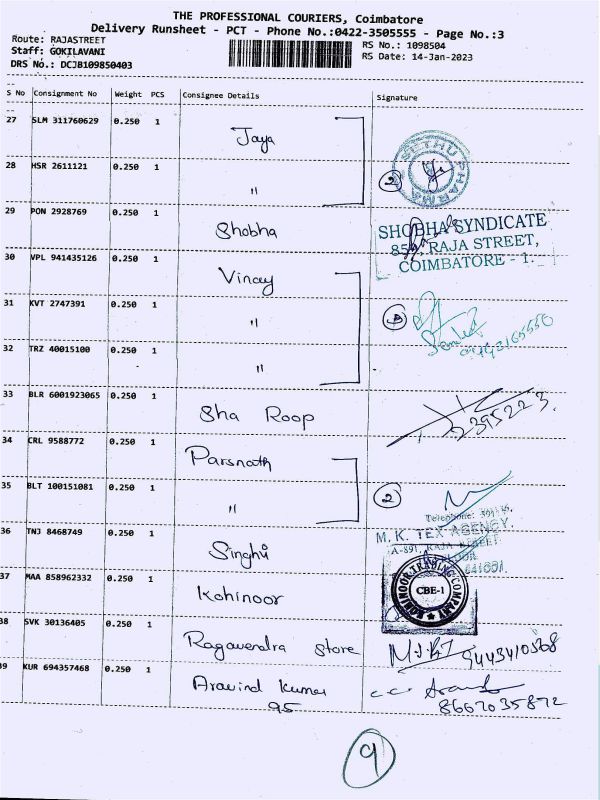 THE PROFESSIONAL COURIERS, Coimbatore
Delivery Runsheet - PCT - Phone No.:0422-3505555 - Page No.:3
Route: RAJASTREET
RS No.: 1098504
Staff: GOKILAVANI
RS Date: 14-Jan-2023
DRS No.: DCJB109850403
S No Consignment No Weight PCS Consignee Details Signature
27 SLM 311760629 0.250 1 Jaya
28 HSR 2611121 0.250 1 " 2 SETHU PHARMA
29 PON 2928769 0.250 1 Shobha
SHOBHA SYNDICATE
RAJA STREET,
COIMBATORE - 1.
30 VPL 941435126 0.250 1 Vinay
31 KVT 2747391 0.250 1 " 3
32 TRZ 40015100 0.250 1 "
33 BLR 6001923065 0.250 1 Sha Roop
2395223
34 CRL 9588772 0.250 1 Parsnath
35 BLT 100151081 0.250 1 " 2
Telephone:
M. K. TEX AGENCY
36 TNJ 8468749 0.250 1 Singhi
641001.
37 MAA 858962332 0.250 1 Kohinoor
KOHINOOR TRADING COMPANY
CBE-1
38 SVK 30136405 0.250 1 Ragavendra Store
39 KUR 694357468 0.250 1 Aravind Kumar
95
8667035872
9